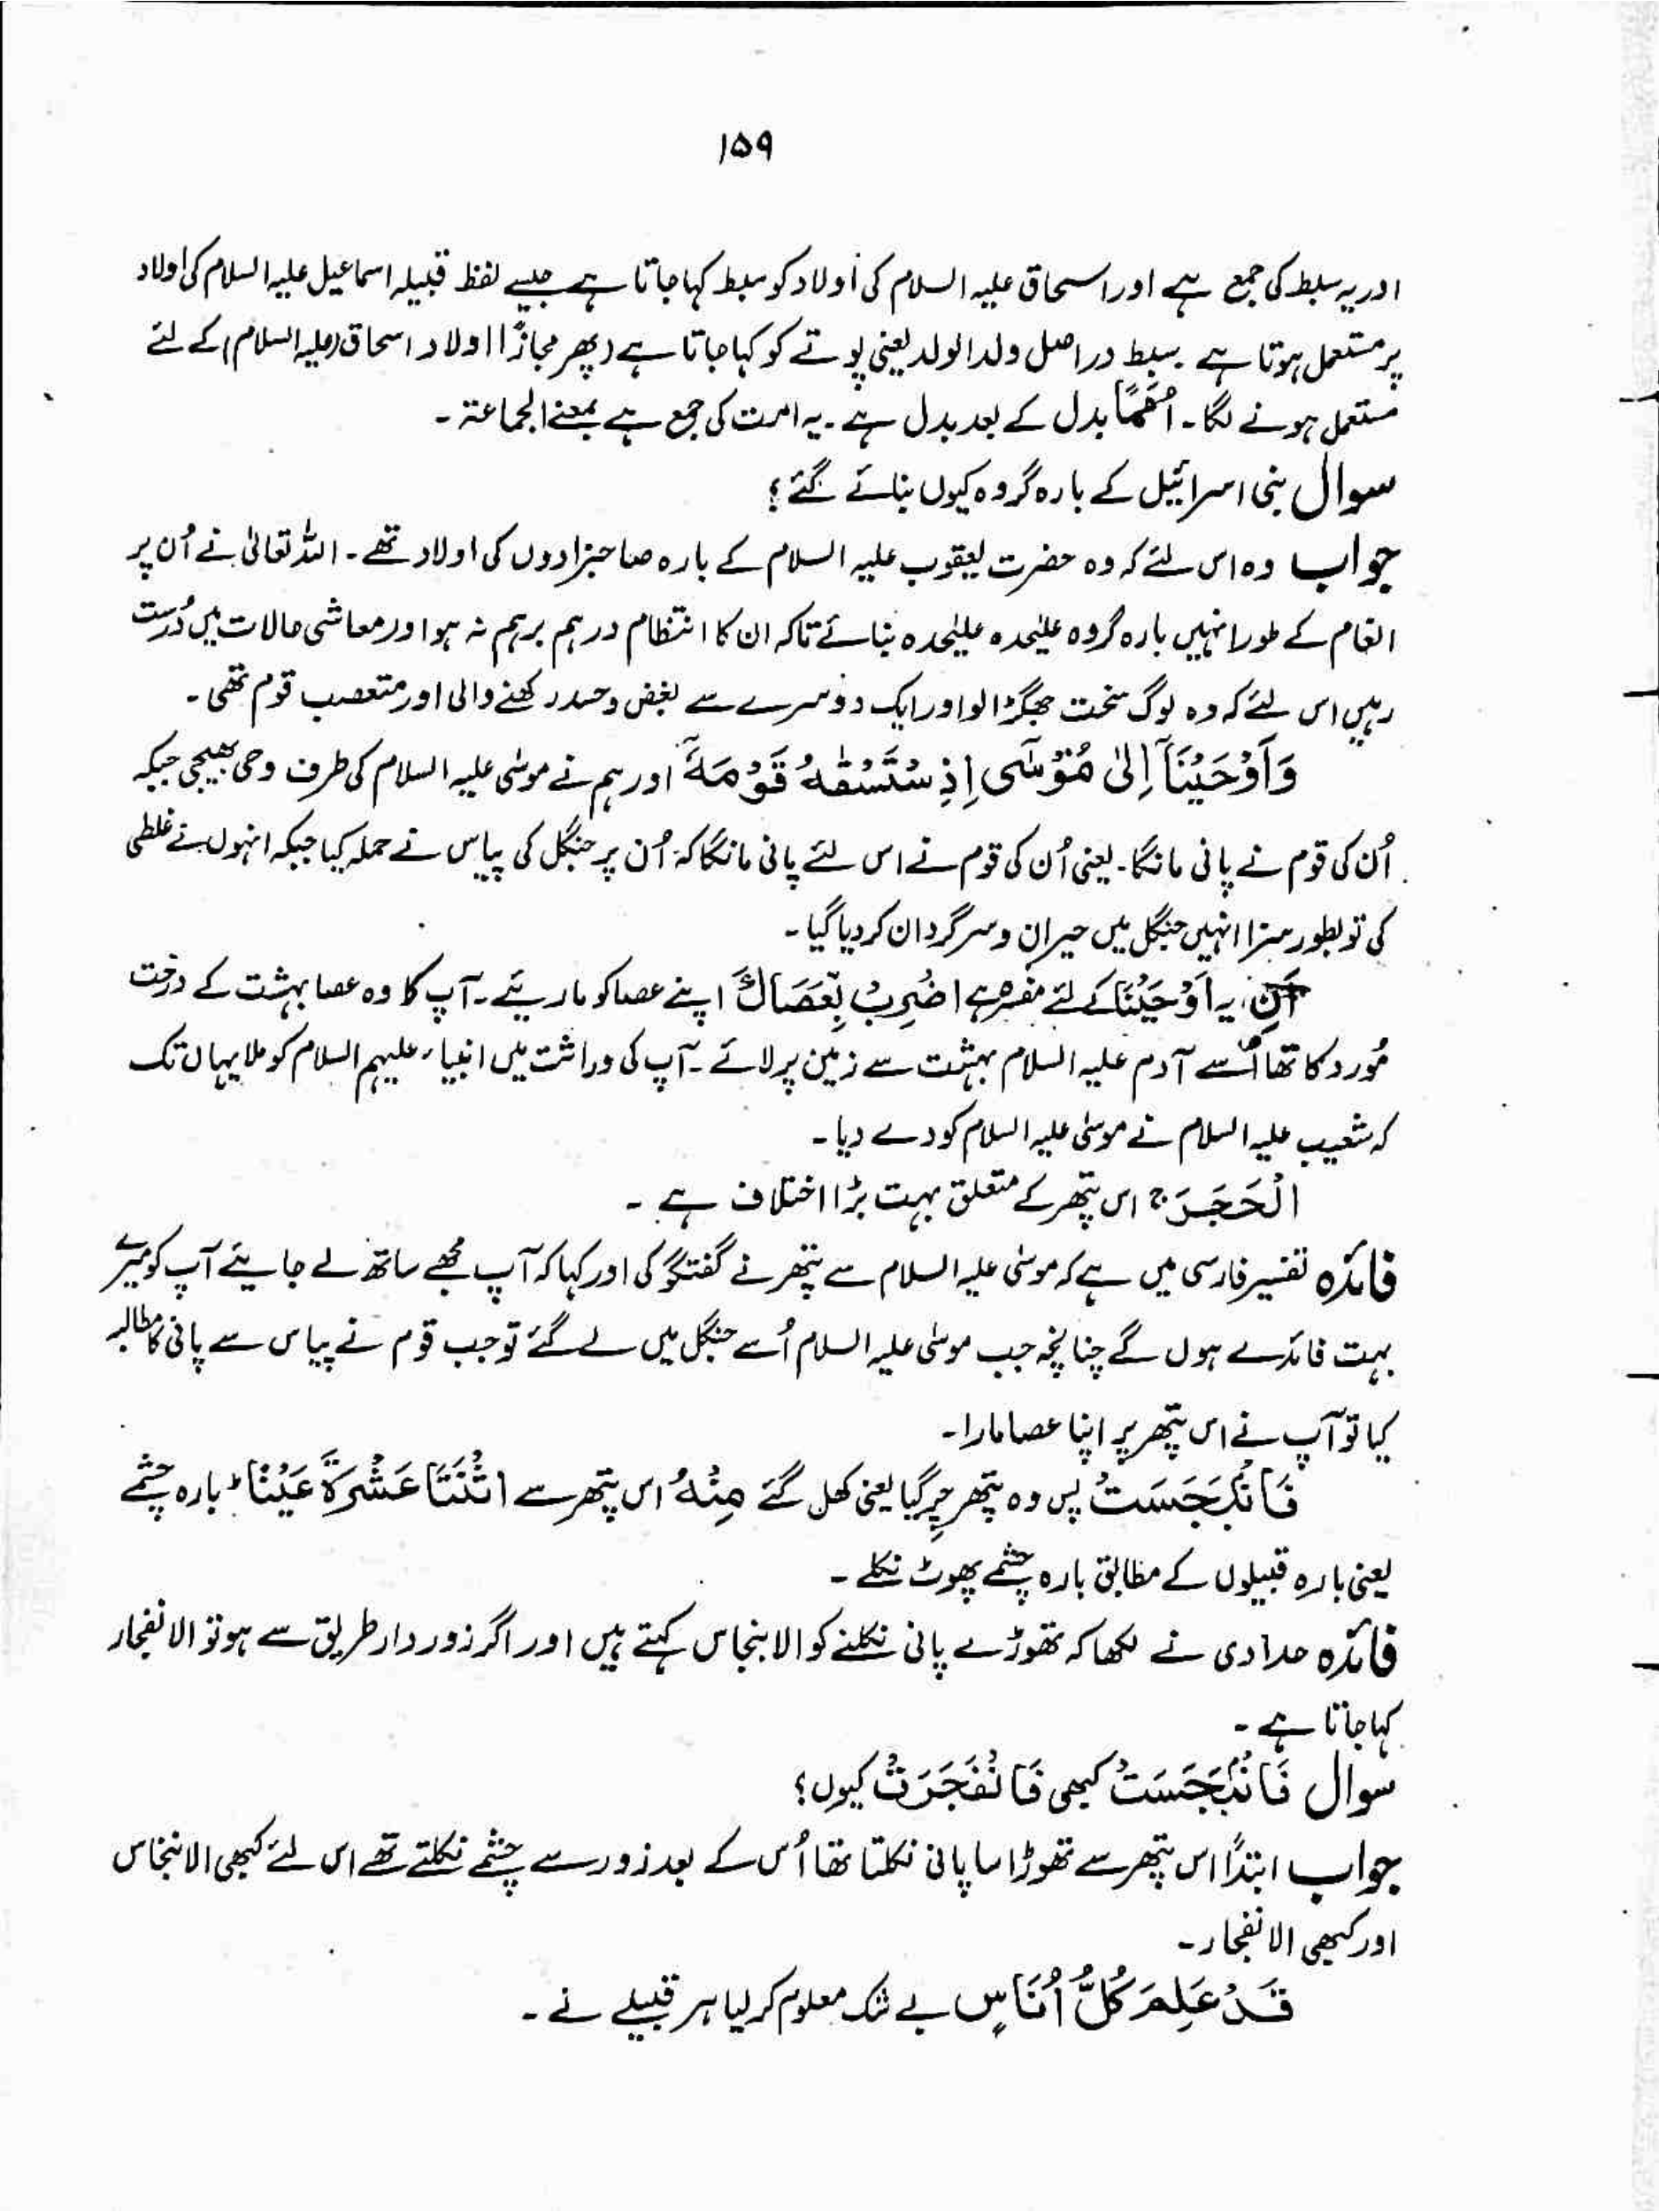 ۱۵۹
اور یہ سبط کی جمع ہے اور اسحاق علیہ السلام کی اولاد کو سبط کہا جاتا ہے جیسے لفظ قبیلہ اسماعیل علیہ السلام کی اولاد
پر مستعمل ہوتا ہے ۔ سبط دراصل ولد الولد یعنی پوتے کو کہا جاتا ہے (پھر مجازًا اولاد اسحاق (علیہ السلام) کے لئے
مستعمل ہونے لگا ۔ اُمَمًا بدل کے بعد بدل ہے ۔ یہ امت کی جمع ہے بمعنے الجماعتہ ۔
سوال بنی اسرائیل کے بارہ گروہ کیوں بنائے گئے ؟
جواب وہ اس لئے کہ وہ حضرت یعقوب علیہ السلام کے بارہ صاحبزادوں کی اولاد تھے ۔ اللہ تعالیٰ نے اُن پر
انعام کے طور انہیں بارہ گروہ علیٰحدہ علیٰحدہ بنائے تاکہ ان کا انتظام درہم برہم نہ ہو اور معاشی حالات میں دُرست
رہیں اس لئے کہ وہ لوگ سخت جھگڑالو اور ایک دوسرے سے بغض و حسد رکھنے والی اور متعصب قوم تھی ۔
وَاَوْحَیْنَآ اِلیٰ مُوْسٰٓی اِذِ سْتَسْقٰہُ قَوْمُہٗٓ اور ہم نے موسٰی علیہ السلام کی طرف وحی بھیجی جبکہ
اُن کی قوم نے پانی مانگا ۔ یعنی اُن کی قوم نے اس لئے پانی مانگا کہ اُن پر جنگل کی پیاس نے حملہ کیا جبکہ انہوں نے غلطی
کی تو بطور سزا انہیں جنگل میں حیران و سرگردان کر دیا گیا ۔
اَنِ ، یہ اَوْحَیْنَا کے لئے مفسرہ ہے اضْرِبْ بِّعَصَاکَ اپنے عصا کو مارئیے ۔ آپ کا وہ عصا بہشت کے درخت
مُورد کا تھا اُسے آدم علیہ السلام بہشت سے زمین پر لائے ۔ آپ کی وراثت میں انبیاء علیہم السلام کو ملا یہاں تک
کہ شعیب علیہ السلام نے موسٰی علیہ السلام کو دے دیا ۔
الْحَجَرَ ۚ اس پتھر کے متعلق بہت بڑا اختلاف ہے ۔
فائدہ تفسیر فارسی میں ہے کہ موسٰی علیہ السلام سے پتھر نے گفتگو کی اور کہا کہ آپ مجھے ساتھ لے جائیے آپ کو میرے
بہت فائدے ہوں گے چنانچہ جب موسٰی علیہ السلام اُسے جنگل میں لے گئے تو جب قوم نے پیاس سے پانی کا مطالبہ
کیا تو آپ نے اس پتھر پر اپنا عصا مارا ۔
فَانْۢبَجَسَتْ پس وہ پتھر چِر گیا یعنی کھل گئے مِنْہُ اس پتھر سے اثْنَتَا عَشْرَۃَ عَیْنًا ؕ بارہ چشمے
یعنی بارہ قبیلوں کے مطابق بارہ چشمے پھوٹ نکلے ۔
فائدہ حدادی نے لکھا کہ تھوڑے پانی نکلنے کو الانبجاس کہتے ہیں اور اگر زوردار طریق سے ہو تو الانفجار
کہا جاتا ہے ۔
سوال فَانْۢبَجَسَتْ کبھی فَانْفَجَرَتْ کیوں ؟
جواب ابتدًا اس پتھر سے تھوڑا سا پانی نکلتا تھا اُس کے بعد زور سے چشمے نکلتے تھے اس لئے کبھی الانبخاس
اور کبھی الانفجار ۔
قَدْ عَلِمَ کُلُّ اُنَاسٍ بے شک معلوم کر لیا ہر قبیلے نے ۔